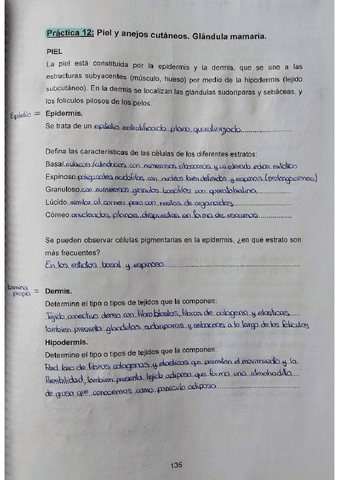 Práctica 12: Piel y anejos cutáneos. Glándula mamaria.
PIEL
La piel está constituida por la epidermis y la dermis, que se une a las
estructuras subyacentes (músculo, hueso) por medio de la hipodermis (tejido
subcutáneo). En la dermis se localizan las glándulas sudoríparas y sebáceas, y
los folículos pilosos de los pelos.
Epitelio = Epidermis.
Se trata de un epitelio estratificado plano queratinizado
Defina las características de las células de los diferentes estratos:
Basal cúbicas/cilíndricas con numerosos ribosomas y un elevado índice mitótico
Espinoso poligonales, nucleolos, con núcleo bien definidos y espinas (prolongaciones)
Granuloso con numerosos gránulos basófilos con queratohialina
Lúcido similar al córneo pero con restos de organoides
Córneo anucleadas, planas, dispuestas en forma de escamas
Se pueden observar células pigmentarias en la epidermis, ¿en qué estrato son
más frecuentes?
En los estratos basal y espinoso
Lamina propia = Dermis.
Determine el tipo o tipos de tejidos que la componen:
Tejido conectivo denso con fibroblastos, fibras de colágeno y elásticas
también presenta glándulas sudoríparas y sebáceas a lo largo de los folículos
Hipodermis.
Determine el tipo o tipos de tejidos que la componen:
Red laxa de fibras colágenas y elásticas que permiten el movimiento y la
flexibilidad, también presenta tejido adiposo que forma una almohadilla
de grasa que conocemos como panículo adiposo
135